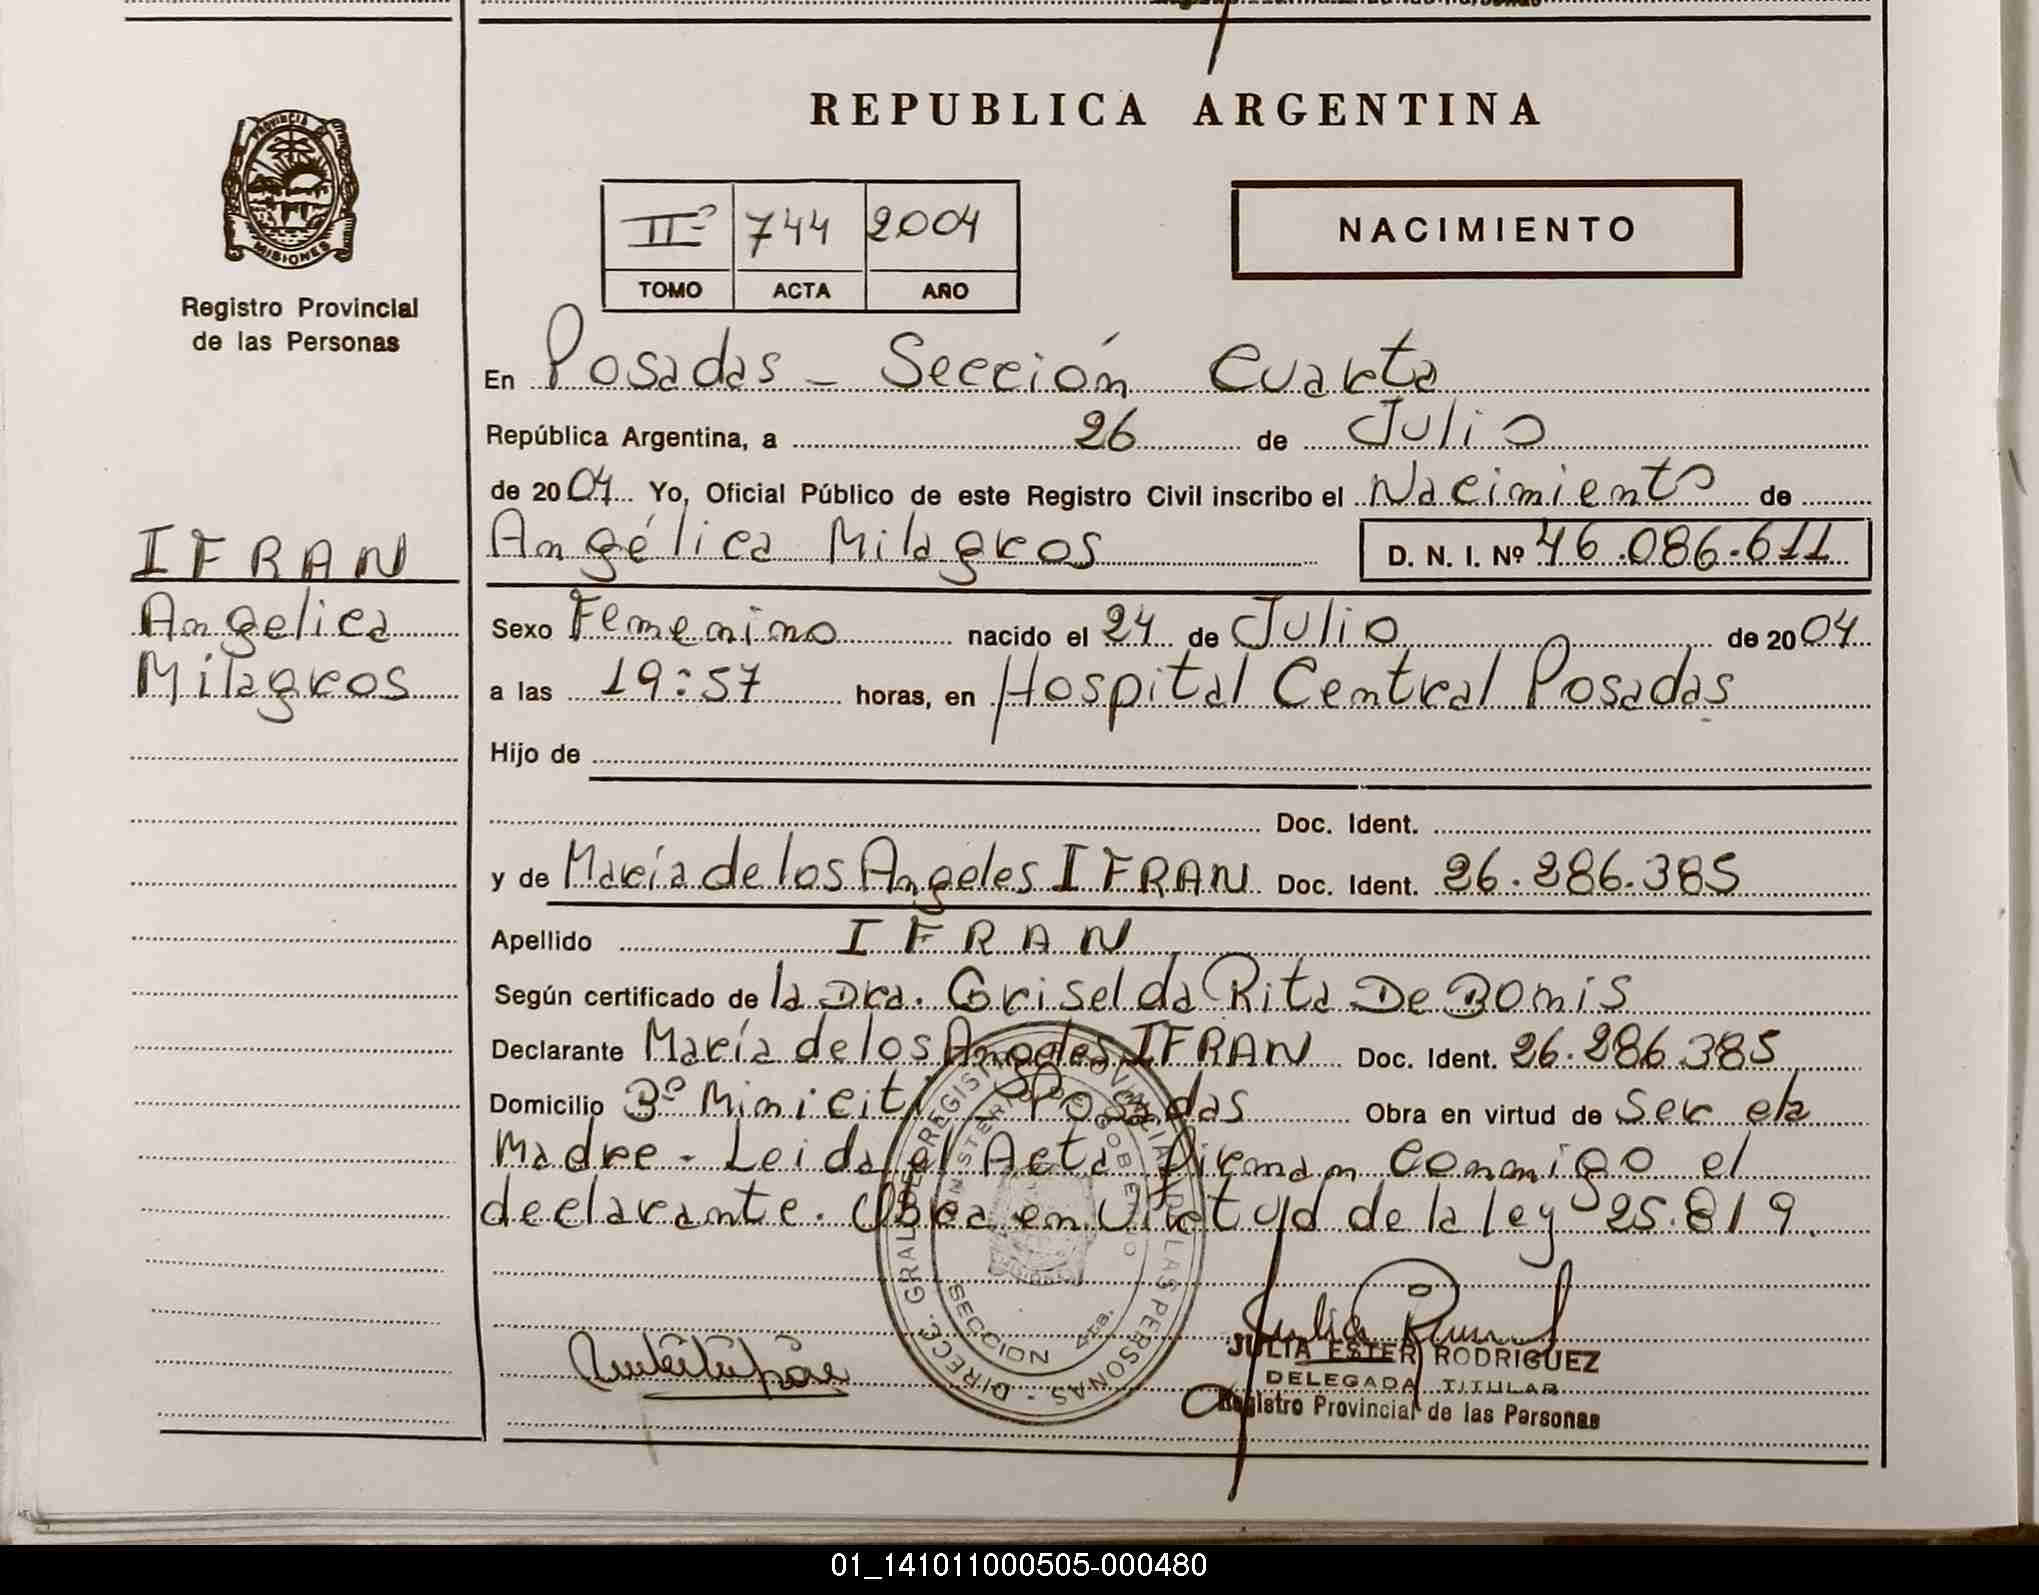 REPUBLICA ARGENTINA
PROVINCIA DE
MISIONES
Registro Provincial
de las Personas
IIº 744 2004
TOMO ACTA AÑO
NACIMIENTO
En Posadas - Sección Cuarta
República Argentina, a 26 de Julio
de 2004 Yo, Oficial Público de este Registro Civil inscribo el Nacimiento de
IFRAN
Angelica
Milagros
Angélica Milagros D. N. I. Nº 46.086.611
Sexo Femenino nacido el 24 de Julio de 2004
a las 19:57 horas, en Hospital Central Posadas
Hijo de
Doc. Ident.
y de María de los Angeles IFRAN Doc. Ident. 26.286.385
Apellido IFRAN
Según certificado de la Dra. Griselda Rita De Bonis
Declarante María de los Angeles IFRAN Doc. Ident. 26.286.385
Domicilio 3º Miniciti Posadas Obra en virtud de ser la
Madre - Leida el Acta Firman conmigo el
declarante. Obra en virtud de la ley 25.819.
DIRECC. GRAL. DE REGISTRO PROVINCIAL DE LAS PERSONAS -
MINISTERIO DE GOBIERNO
SECCION 4ta.
JULIA ESTER RODRIGUEZ
DELEGADA TITULAR
Registro Provincial de las Personas
01_141011000505-000480